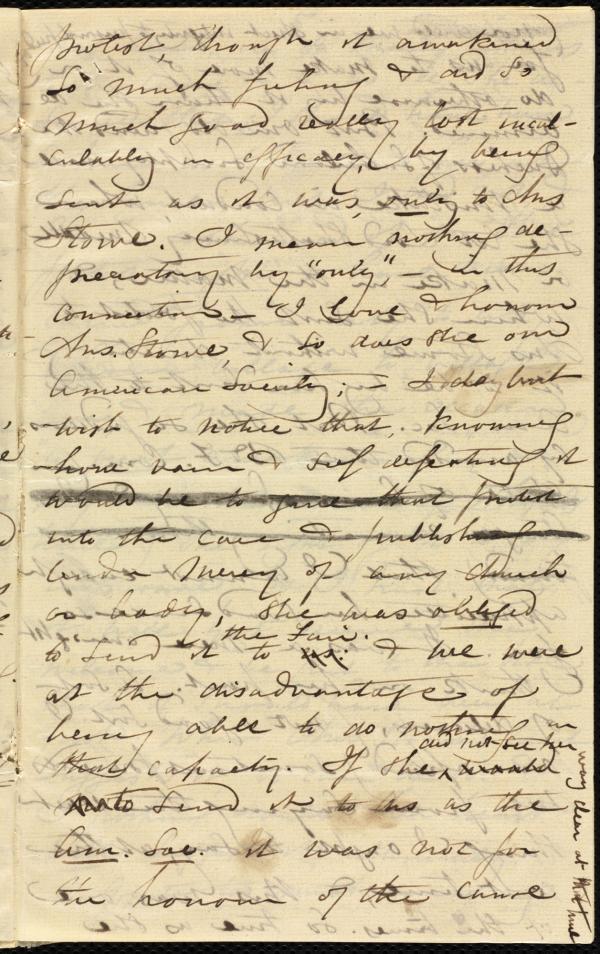 protest, though it awakened
so much feeling & did so
much good really lost incal-
culably in efficacy, by being
sent as it was, only to Mrs
Stowe. I mean nothing de-
precatory by "only", – in this
connection – I love & honour
Mrs. Stowe, & so does the our
American Society; – I do but
wish to notice that, knowing
how vain & self defeating it
would be to give that protest
into the care & publishing
tender mercy of any church
or body, she was obliged
to send it to the Fair. & we were
at the disadvantage of
being able to do, nothing in
that capacity. If she did not see her
way clear at that time
to send it to us as the
Am. Soc. it was not for
the honour of the cause